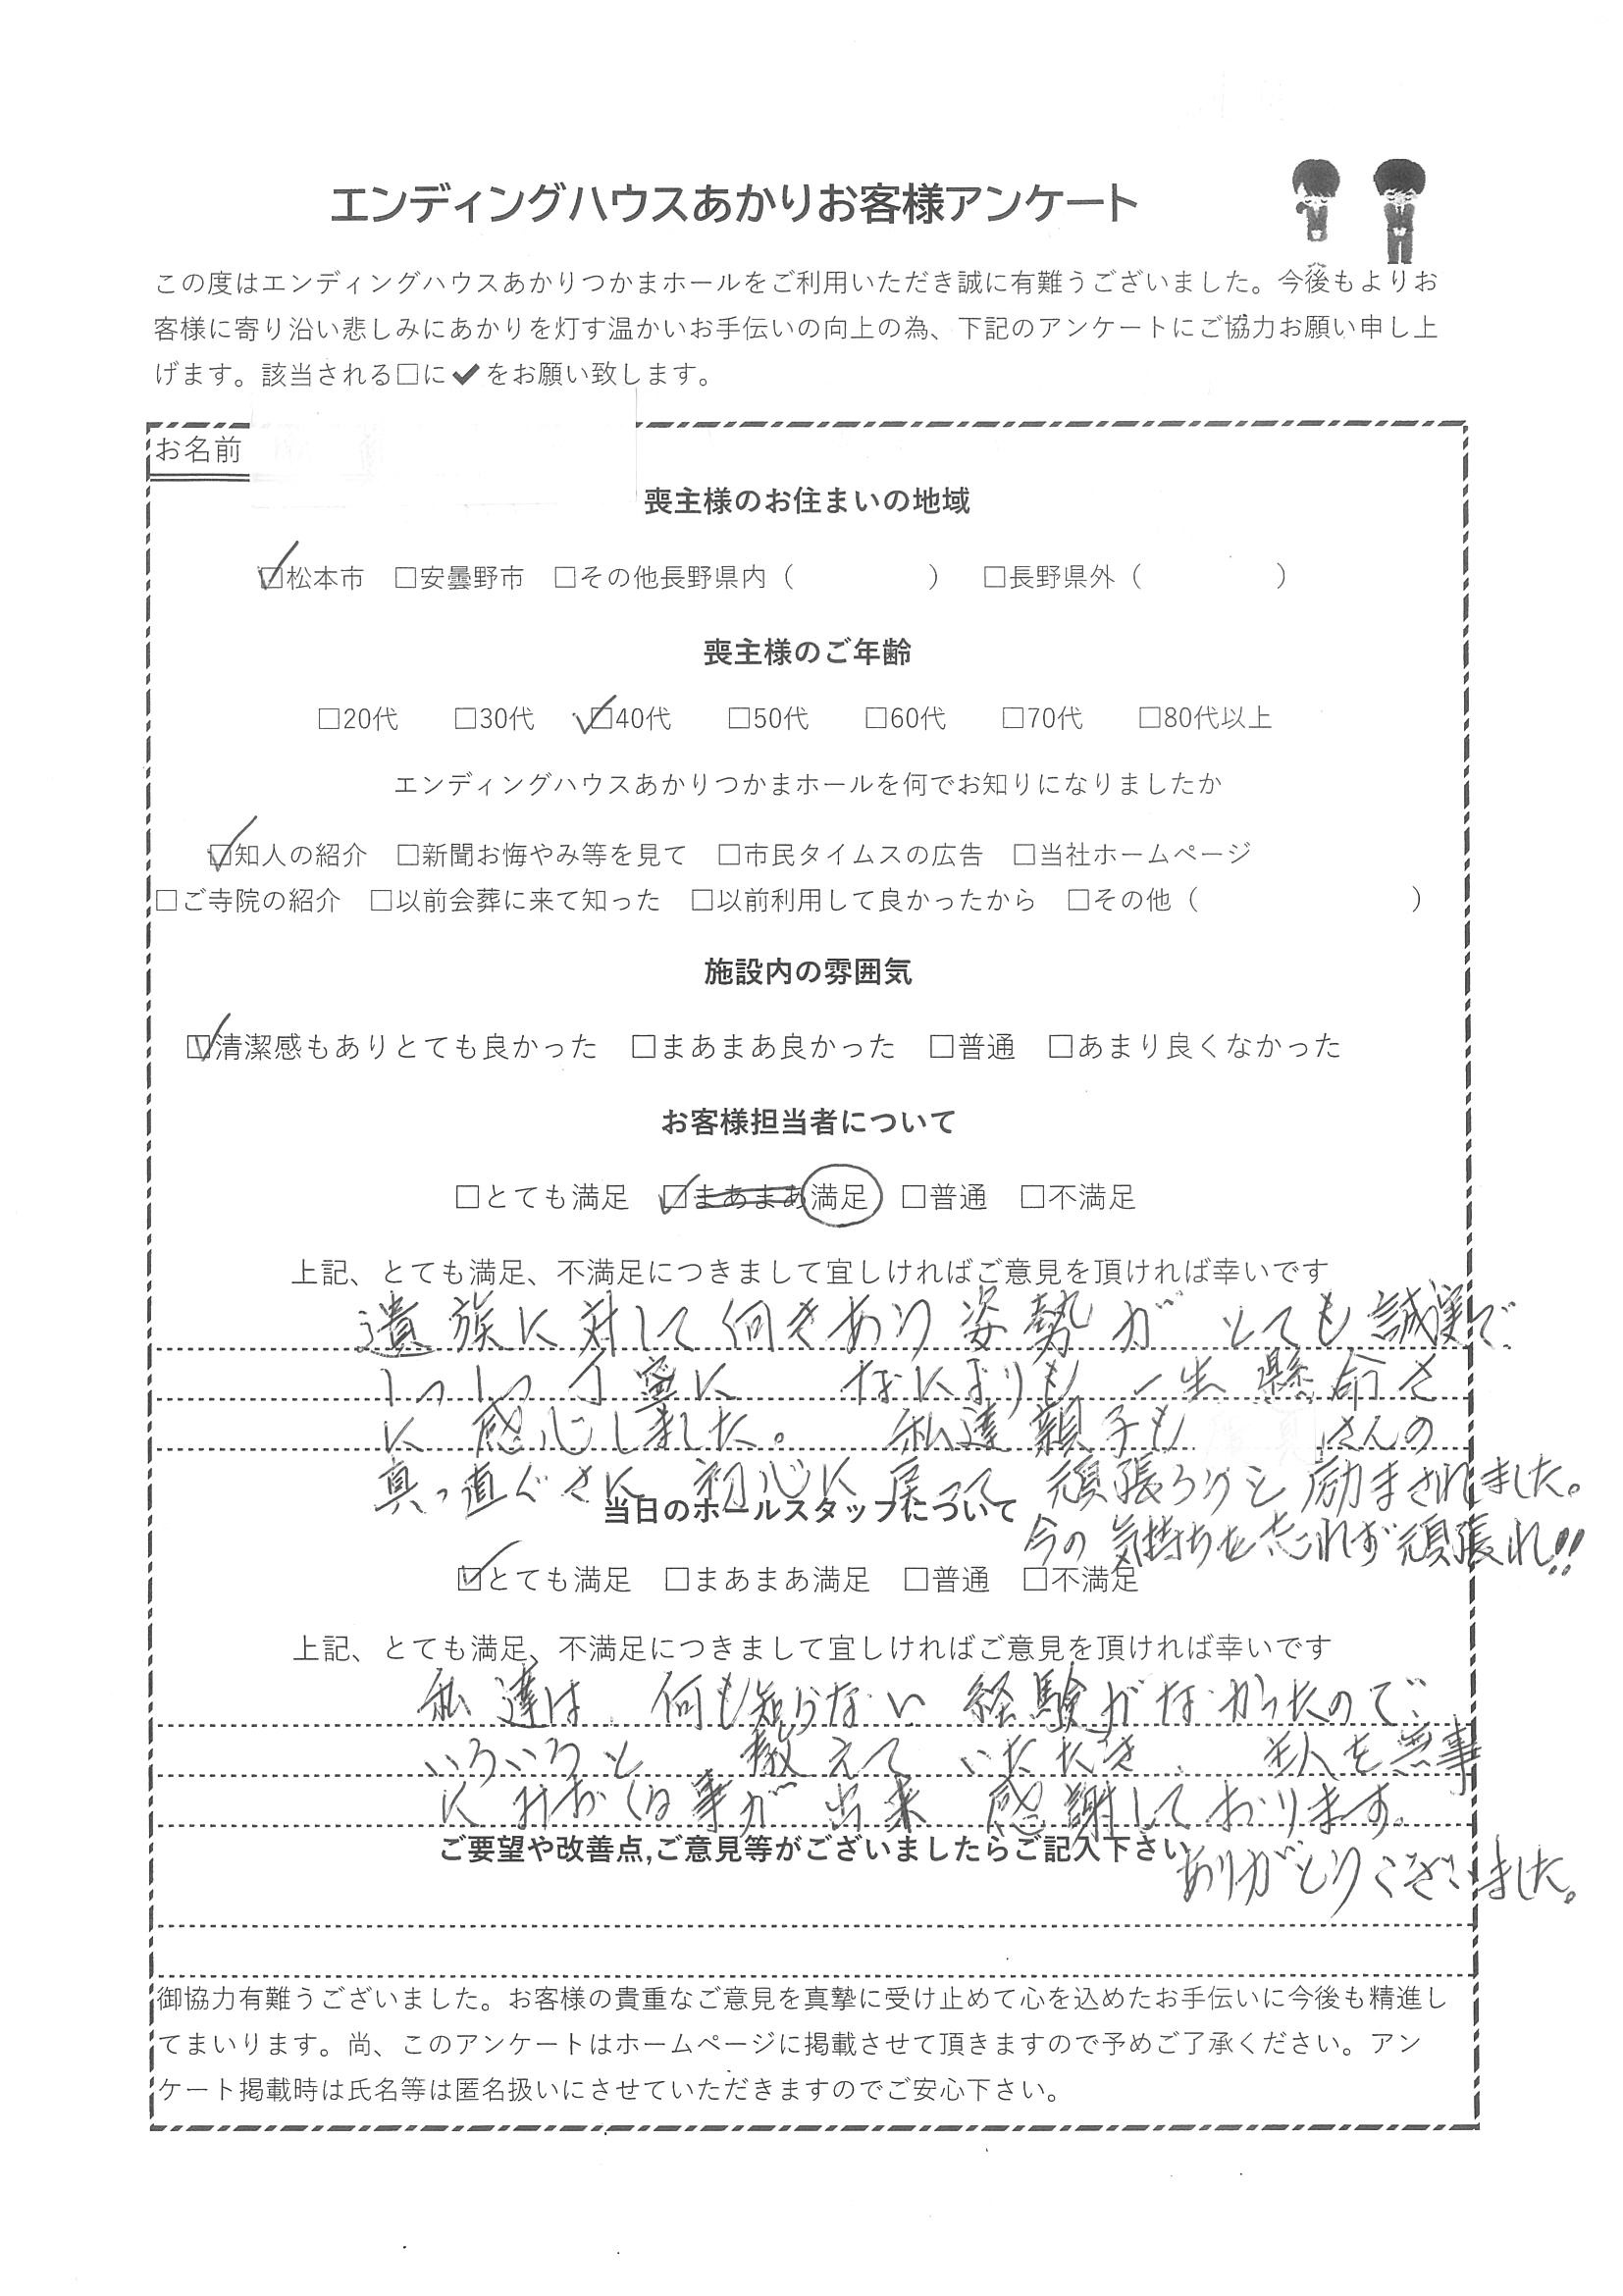 エンディングハウスあかりお客様アンケート
この度はエンディングハウスあかりつかまホールをご利用いただき誠に有難うございました。今後もよりお
客様に寄り沿い悲しみにあかりを灯す温かいお手伝いの向上の為、下記のアンケートにご協力お願い申し上
げます。該当される□に✔をお願い致します。
お名前
喪主様のお住まいの地域
☑松本市 □安曇野市 □その他長野県内（ ） □長野県外（ ）
喪主様のご年齢
□20代 □30代 ☑40代 □50代 □60代 □70代 □80代以上
エンディングハウスあかりつかまホールを何でお知りになりましたか
☑知人の紹介 □新聞お悔やみ等を見て □市民タイムスの広告 □当社ホームページ
□ご寺院の紹介 □以前会葬に来て知った □以前利用して良かったから □その他（ ）
施設内の雰囲気
☑清潔感もありとても良かった □まあまあ良かった □普通 □あまり良くなかった
お客様担当者について
□とても満足 ☑まあまあ満足 □普通 □不満足
上記、とても満足、不満足につきまして宜しければご意見を頂ければ幸いです
遺族に対して向きあう姿勢が とても誠実で
1つ1つ丁寧に なによりも 一生懸命さ
に 感心しました。 私達親子も さんの
真っ直ぐさに 初心に戻って 頑張ろうと励まされました。
当日のホールスタッフについて
今の気持ちを忘れず頑張れ!!
☑とても満足 □まあまあ満足 □普通 □不満足
上記、とても満足、不満足につきまして宜しければご意見を頂ければ幸いです
私達は 何も知らない 経験がなかったので、
いろいろと 教えて いただき、 主人を無事
に おみおくる事が 出来 感謝しております。
ご要望や改善点,ご意見等がございましたらご記入下さい
ありがとうございました。
御協力有難うございました。お客様の貴重なご意見を真摯に受け止めて心を込めたお手伝いに今後も精進し
てまいります。尚、このアンケートはホームページに掲載させて頂きますので予めご了承ください。アン
ケート掲載時は氏名等は匿名扱いにさせていただきますのでご安心下さい。